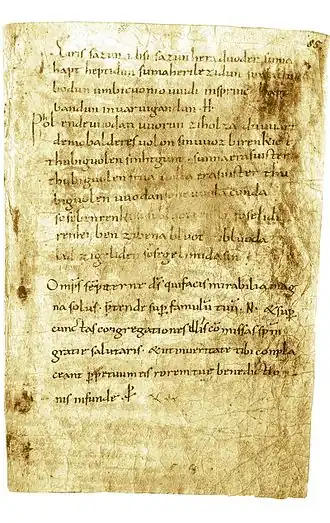 85
Eiris sazun idisi sazun hera duoder suma
hapt heptidun sumaherilezidun sumaclu
bodun umbicuonio uuidi insprinc hapt
bandun inuar uigandun .H.
Phol ende uuodan uuorun ziholza du uuart
demo balderes uolon sinuuoz birenkict
thubiguolen sinhtgunt . sunnaerasuister
thubiguolen friia uolla erasuister thu
biguolen uuodan sohe uuola conda
sosebenrenki sose bluotrenki soselidi
renki ben zibena bluot zibluoda
lid zigeliden sosegelimida sin
Omps sempiterne ds quifacis mirabilia mag
na solus . ptende sup famulū tuū . N . & sup
cunctas congregationes illi cōmissas spm
gratie salutaris . & ut inueritate tibi compla
ceant ppetuum eis rorem tue benedictio
nis infunde . p